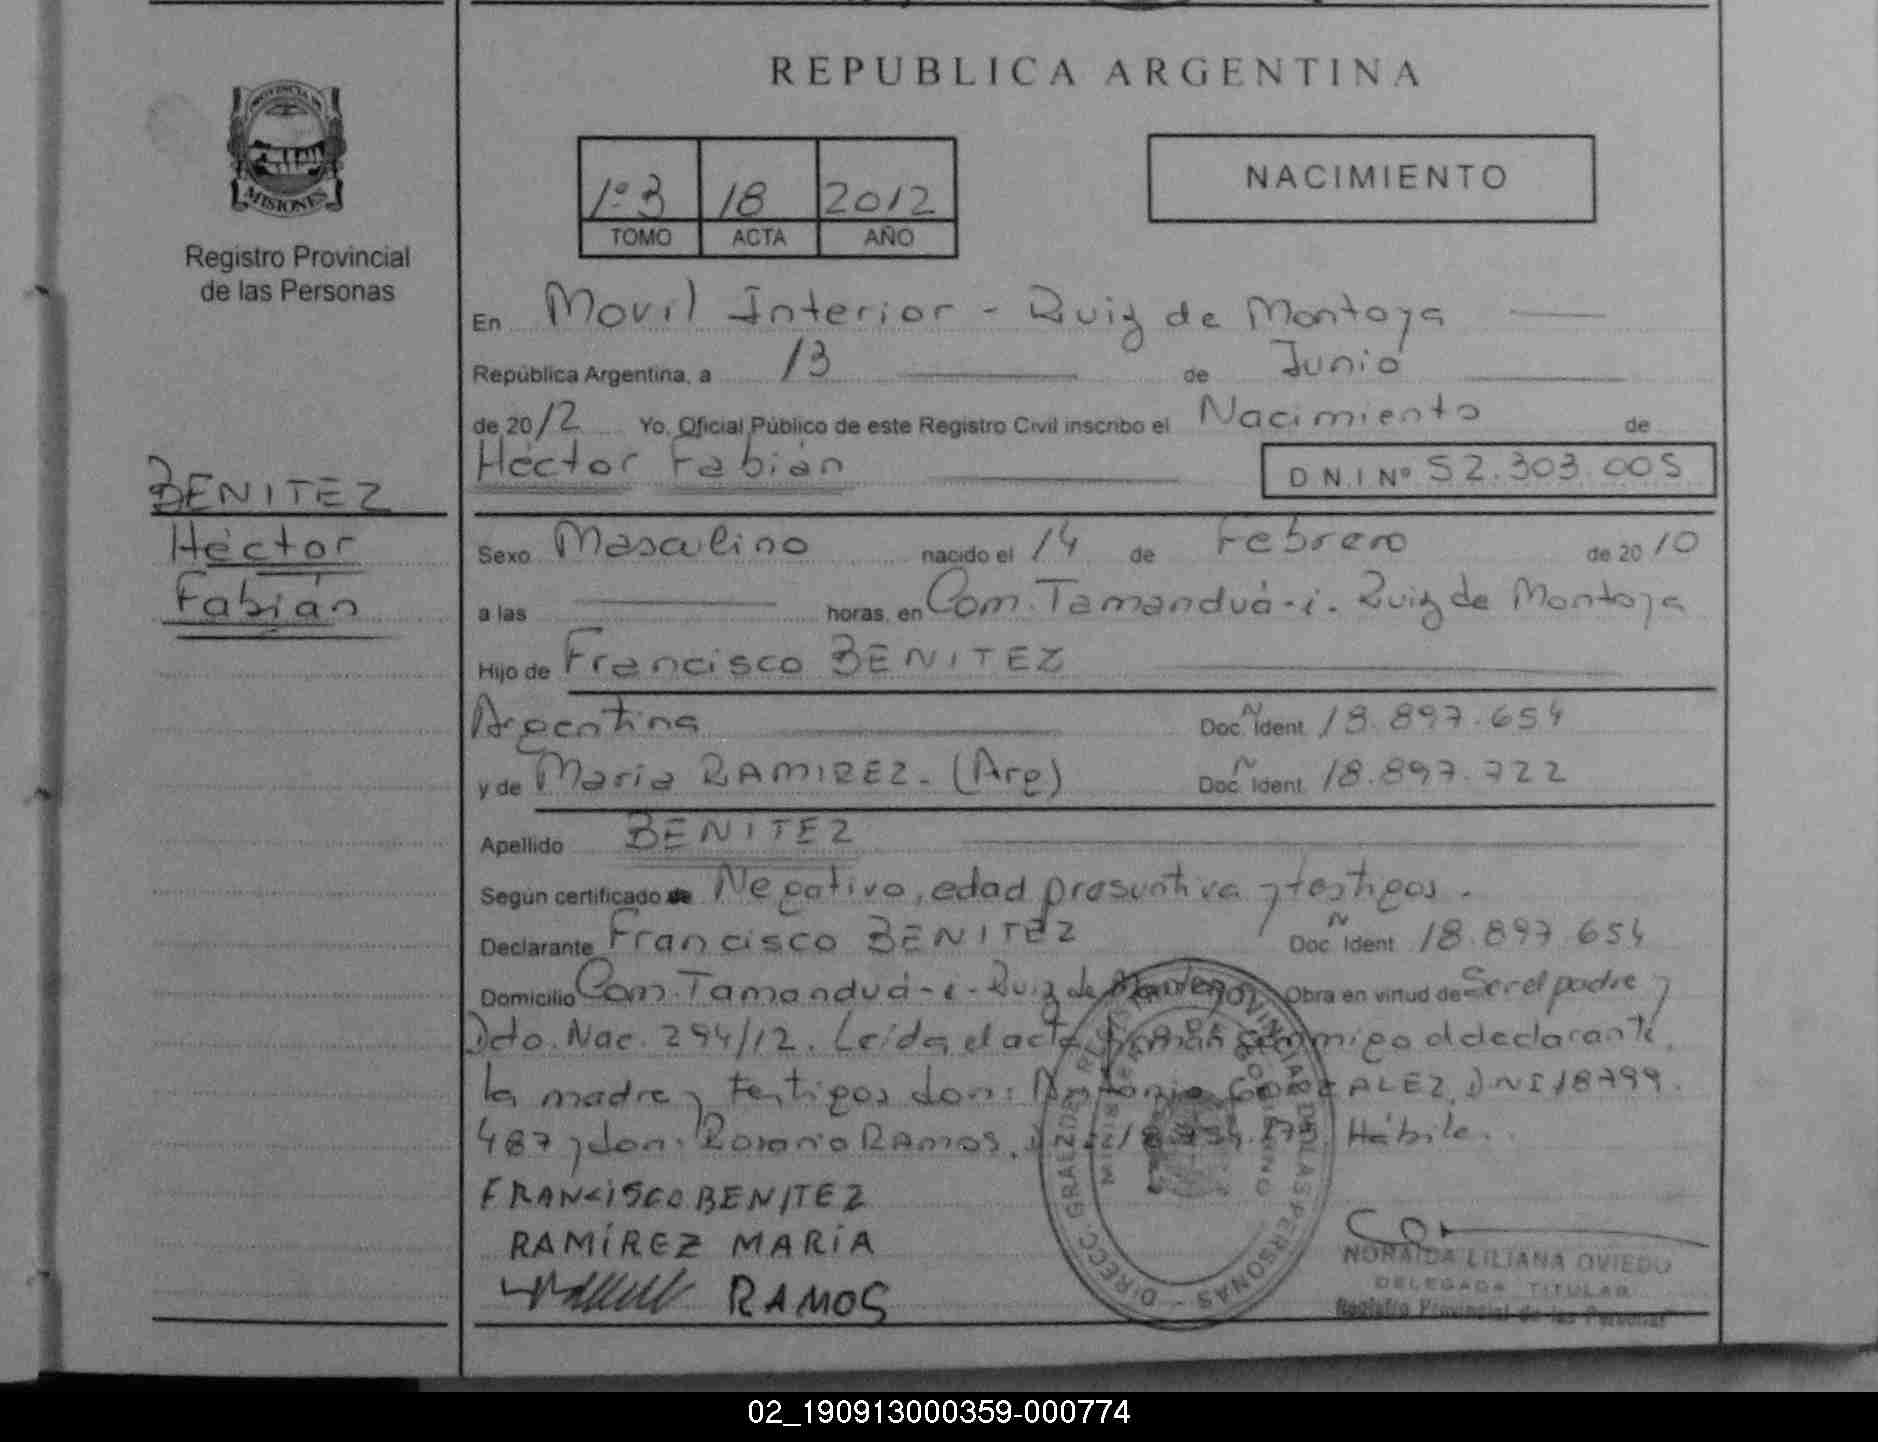 REPUBLICA ARGENTINA
PROVINCIA DE
MISIONES
Registro Provincial
de las Personas
1º3 18 2012
TOMO ACTA AÑO
NACIMIENTO
En Movil Interior - Ruiz de Montoya
República Argentina, a 13 de Junio
de 2012 Yo, Oficial Público de este Registro Civil inscribo el Nacimiento de
Héctor Fabián D.N.I Nº 52.303.005
BENITEZ
Héctor
Fabián
Sexo Masculino nacido el 14 de Febrero de 2010
a las horas, en Com. Tamanduá-i. Ruiz de Montoya
Hijo de Francisco BENITEZ
Argentina Doc. Ident. 18.897.654
y de Maria RAMIREZ. (Arg) Doc. Ident. 18.897.722
Apellido BENITEZ
Según certificado de Negativo, edad presuntiva y testigos.
Declarante Francisco BENITEZ Doc. Ident. 18.897.654
Domicilio Com. Tamanduá-i - Ruiz de Montoya Obra en virtud de Ser el padre y
Dcto. Nac. 294/12. Leída el acta firman conmigo el declarante,
la madre y testigos don: Antonio GONZALEZ, DNI 18799.
487 y don: Rosario RAMOS, Hábile.
FRANCISCO BENITEZ
RAMÍREZ MARÍA
RAMOS
DIRECC. GRAL. DEL REGISTRO PROVINCIAL DE LAS PERSONAS
NORAIDA LILIANA OVIEDO
DELEGADA TITULAR
Registro Provincial de las Personas
02_190913000359-000774